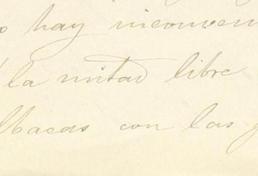 hay inconven
la mitad libre
lbaceas con las